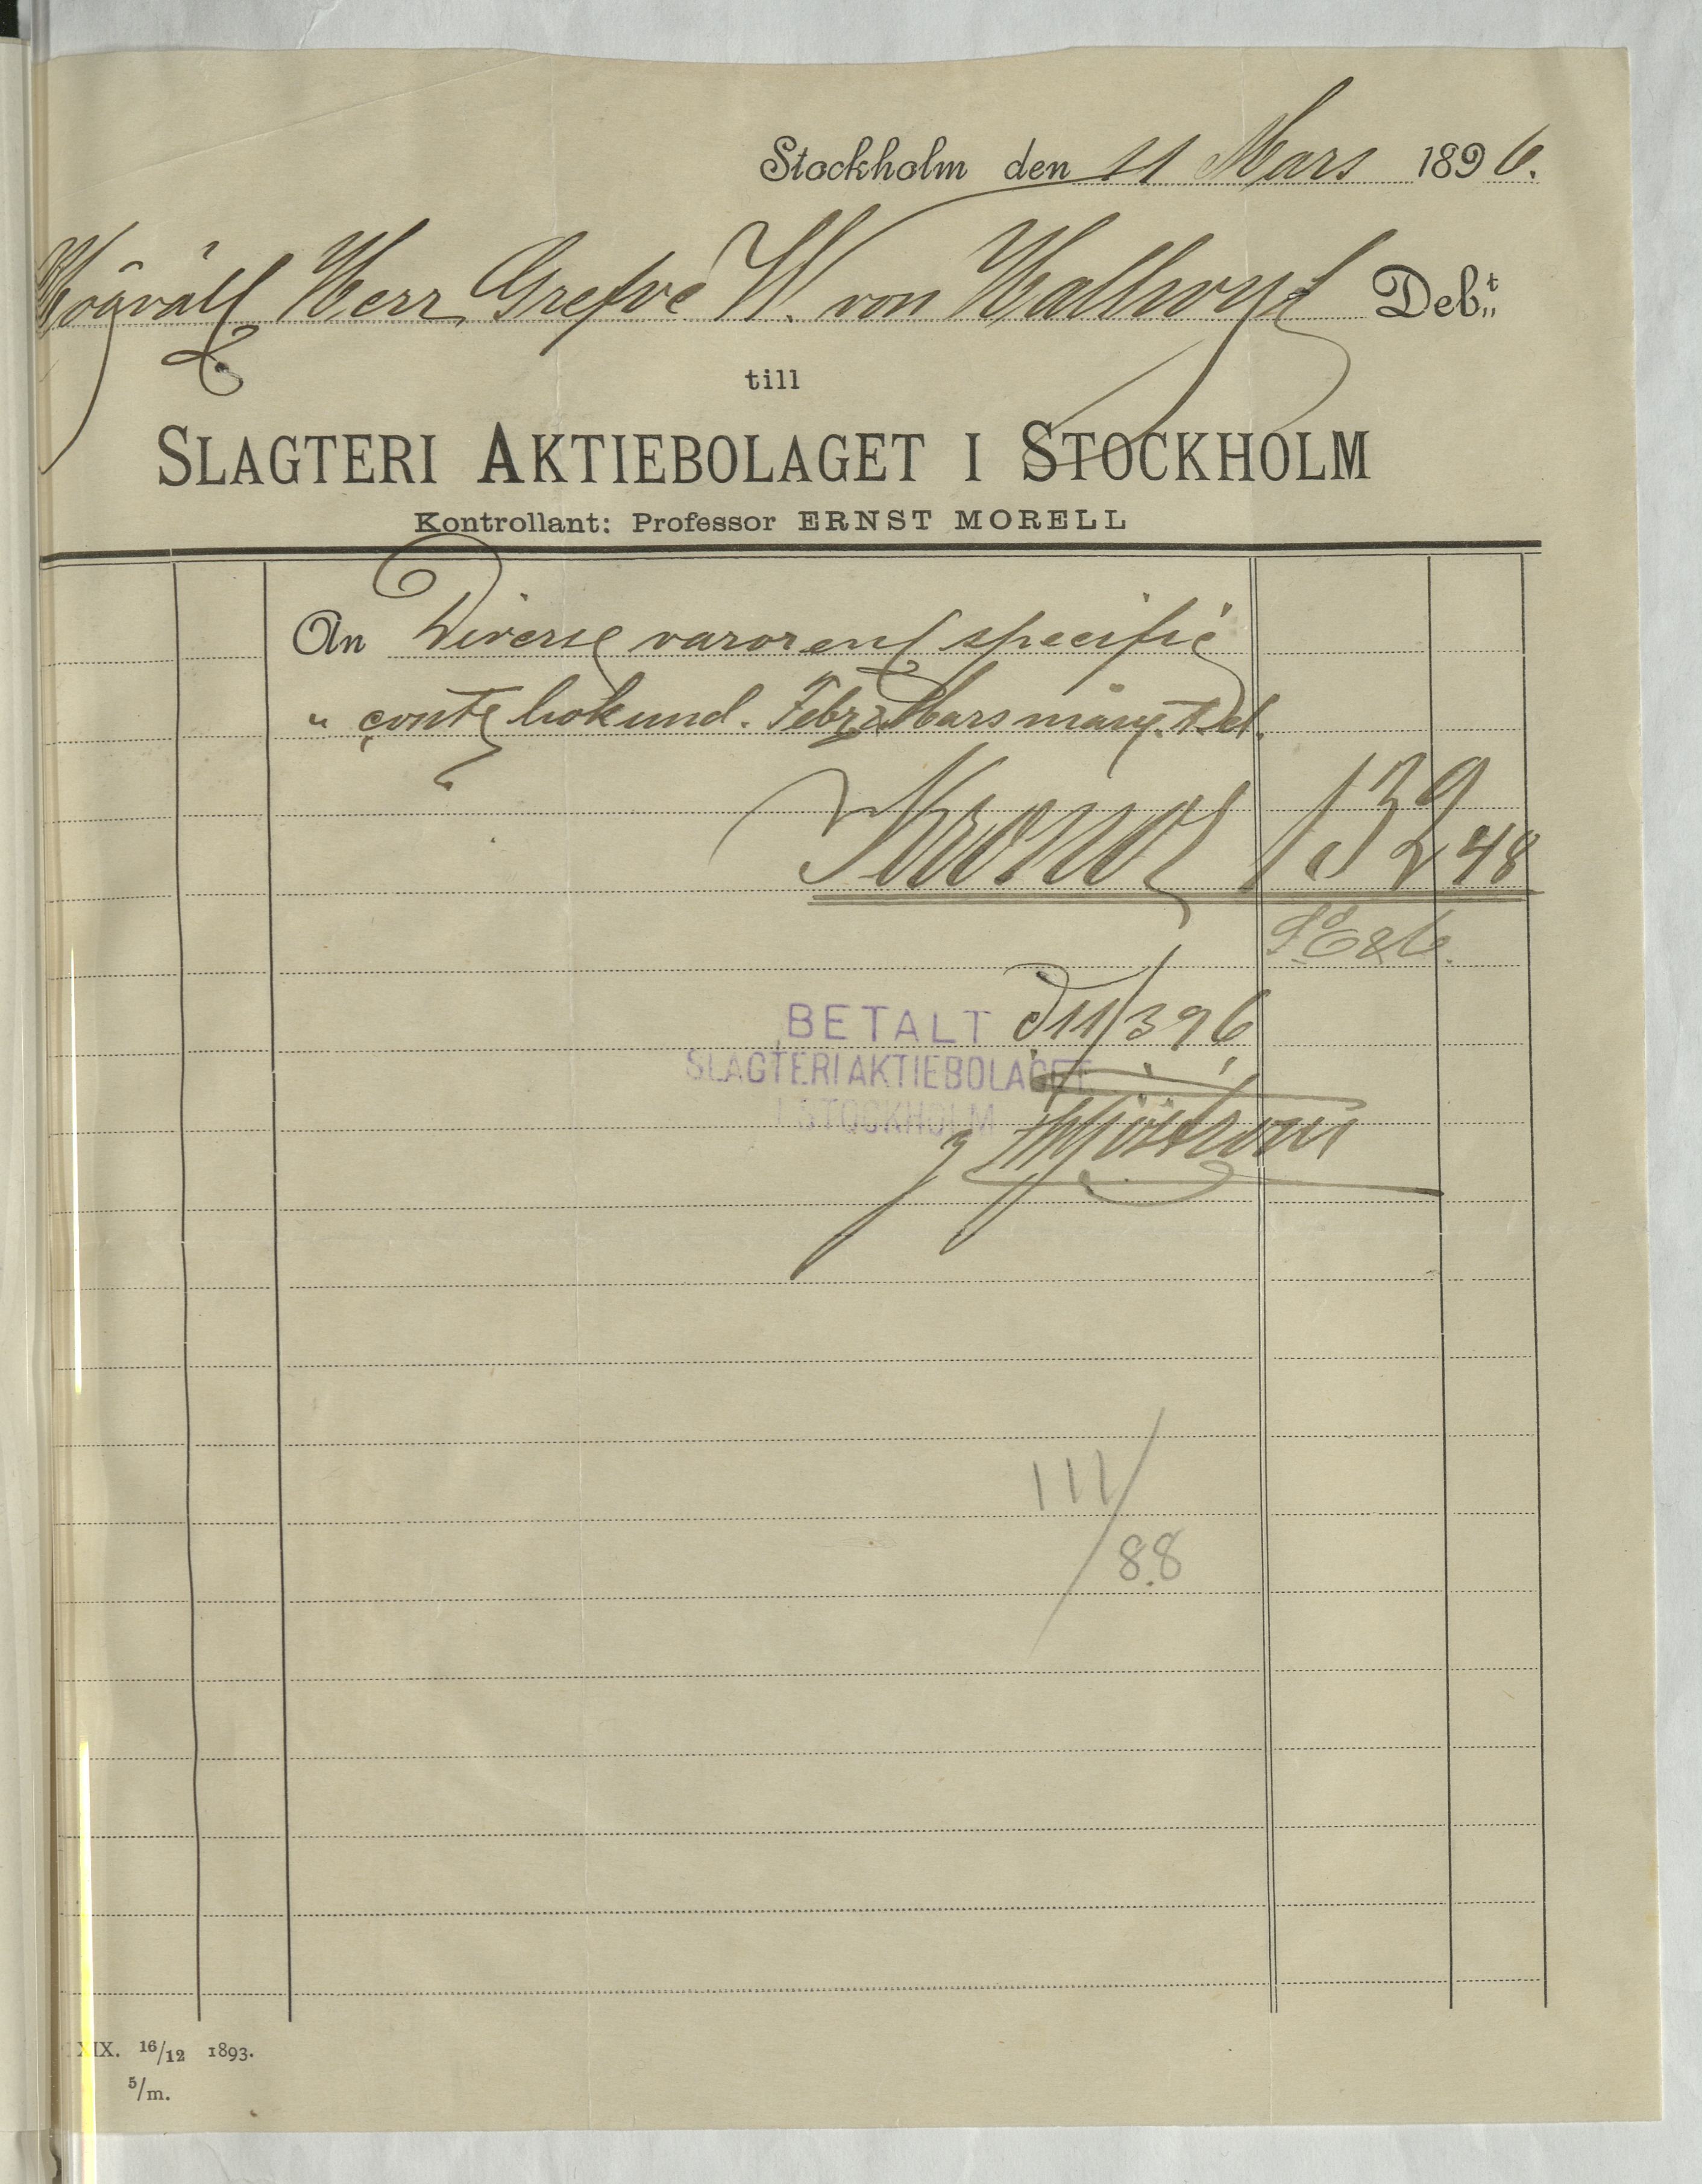 Stockholm den 11 Mars 1896.
Högväll Herr Grefve W. von Hallwyl Deb:t
till
SLAGTERI AKTIEBOLAGET I STOCKHOLM
Kontrollant: Professor ERNST MORELL
An Diverse varor enl specific
" contobok und. Febr & Mars mån.
Kronor 132 48
S. E. & O.
BETALT d 11/3 96
SLAGTERIAKTIEBOLAGET
I STOCKHOLM
111/88
XIX. 16/12 1893.
5/m.